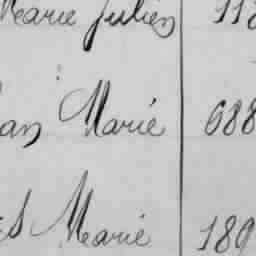 Marie Julien 118
an Marie 688
s Marie 189